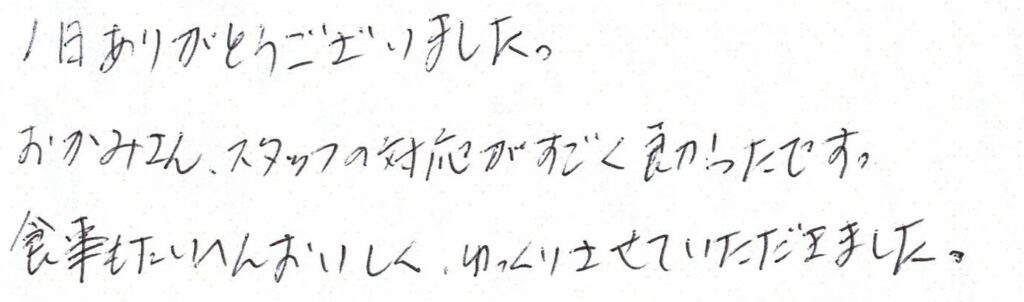 1日ありがとうございました。
おかみさん、スタッフの対応がすごく良かったです。
食事もたいへんおいしく、ゆっくりさせていただきました。